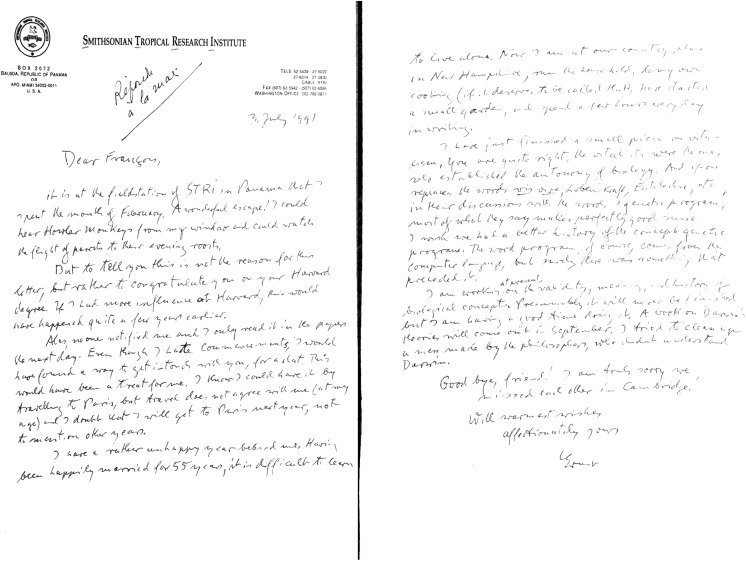 SMITHSONIAN TROPICAL RESEARCH INSTITUTE
BOX 2072
BALBOA, REPUBLIC OF PANAMA
OR
APO MIAMI 34002-0011
U.S.A.
CABLE: STRI
WASHINGTON OFFICE 202-786-2817
Réponse
à la main
3. July 1991
Dear François,
it is at the fieldstation of STRI in Panama that I
spent the month of February. A wonderful escape! I could
hear Howler Monkeys from my window and could watch
the flight of parrots to their evening roosts.
But to tell you this is not the reason for this
letter, but rather to congratulate you on your Harvard
degree. If I had more influence at Harvard, this would
have happened quite a few years earlier.
Alas, no one notified me and I only read it in the papers
the next day. Even though I hate Commencements, I would
have found a way to get in touch with you, for a chat. This
would have been a treat for me. I know I could have it by
travelling to Paris, but travel does not agree with me (at my
age) and I doubt that I will get to Paris next year, not
to mention other years.
I have a rather unhappy year behind me. Having
been happily married for 55 years, it is difficult to learn
to live alone. Now I am at our country place
in New Hampshire, run the household, doing my own
cooking (if it deserves to be called that), have started
a small garden, and spend a few hours every day
in writing.
I have just finished a small piece on vitalism.
You are quite right, the vitalists were the ones
who established the autonomy of biology. And if one
replaces the words vis viva, Lebenskraft, Entelechie, etc.
in their discussions with the words 'genetic program',
most of what they say makes perfectly good sense.
I wish we had a better history of the concept genetic
program. The word program, of course, comes from the
computer language, but surely there was something that
preceded it.
I am working at present on the validity, meaning, and history of
biological concepts. Presumably it will never be finished
but I am having a good time doing it. A book on Darwin's
theories will come out in September. I tried to clean up
a mess made by the philosophers, who did not understand
Darwin.
Good bye, friend! I am truly sorry we
missed each other in Cambridge!
With warmest wishes
affectionately yours
Ernst